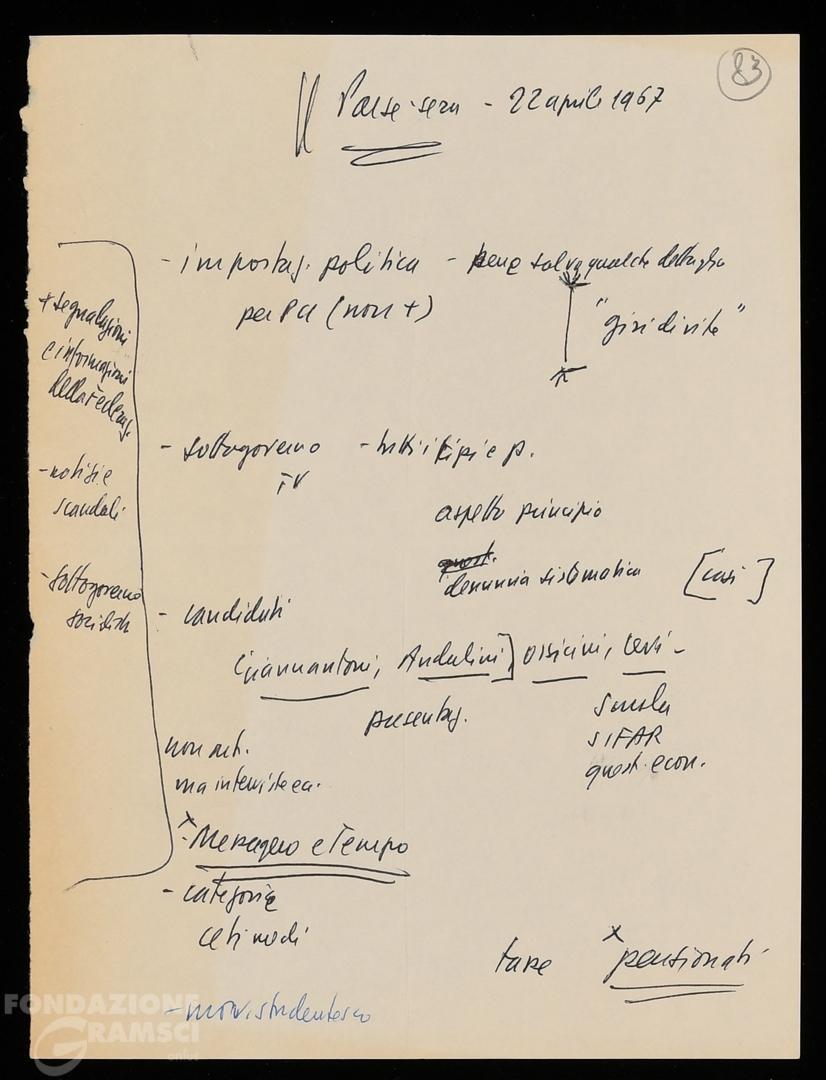 83
Paese-sera - 22 aprile 1967
- impostaz. politica - bene salvo qualche dettaglio
per PCI (non +)
"giri di vite"
+ segnalazioni
e informazioni
della redaz.
- notizie
scandali
- sottogoverno
socialisti
- sottogoverno - tutti i tipi e p.
TV
aspetto principio
quest.
denuncia sistematica [casi]
- candidati
Giannantoni, Andalini] Ossicini, Levi -
presentaz.
scuola
SIFAR
quest. econ.
non art.
ma interviste ecc.
x
- Messaggero e Tempo
- categorie
ceti medi
x
pensionati
- mov. studentesco
FONDAZIONE
GRAMSCI
onlus